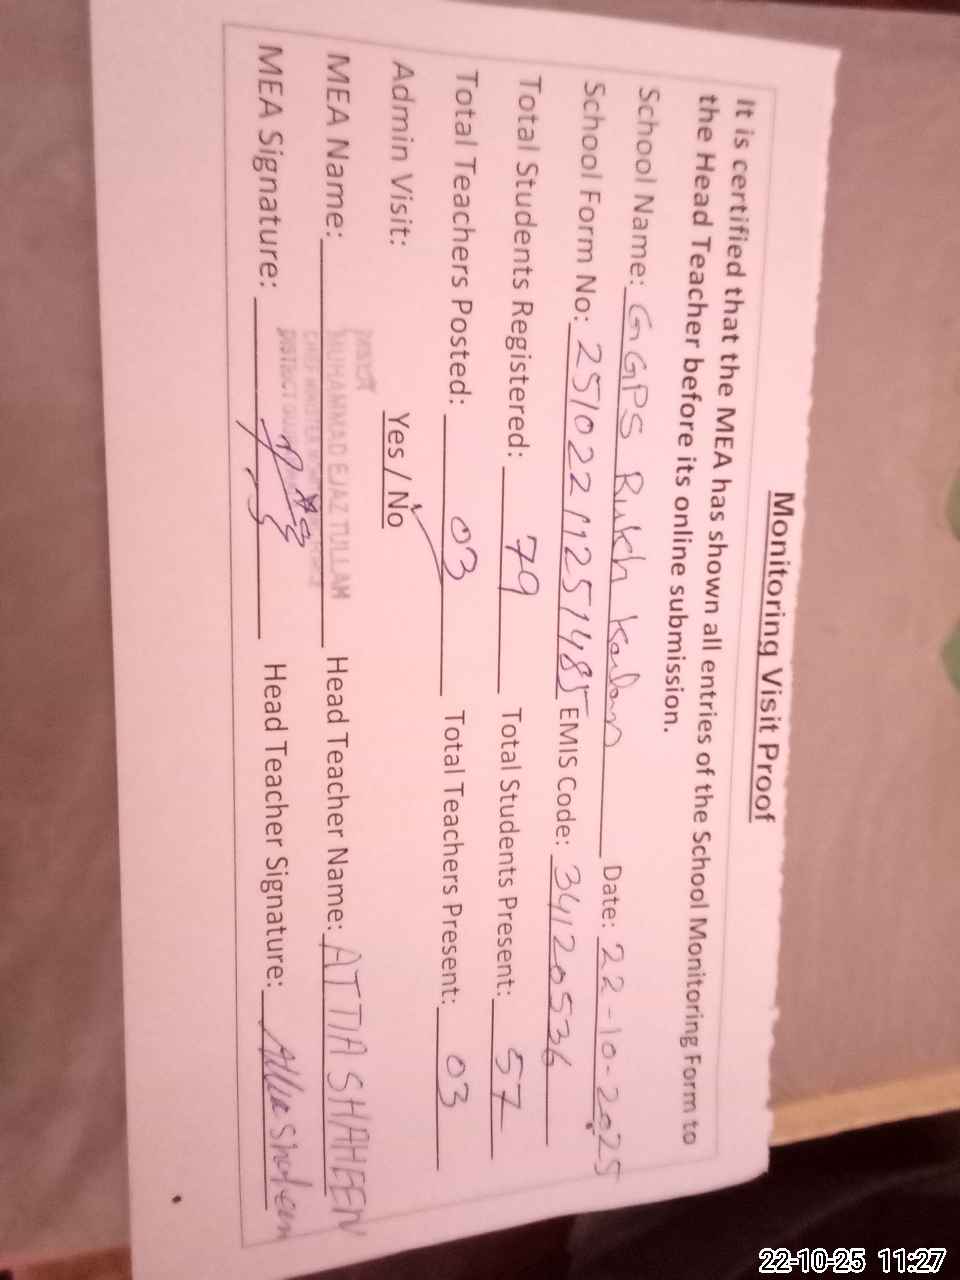 Monitoring Visit Proof
It is certified that the MEA has shown all entries of the School Monitoring Form to
the Head Teacher before its online submission.
School Name: GGPS Rukh Kalan Date: 22-10-2025
School Form No: 25102211251485 EMIS Code: 34120536
Total Students Registered: 79 Total Students Present: 57
Total Teachers Posted: 03 Total Teachers Present: 03
Admin Visit: Yes / No
MEA Name: MUHAMMAD EJAZ TULLAM Head Teacher Name: ATTIA SHAHEEN
CHIEF MINISTER
DISTRICT
MEA Signature: Head Teacher Signature: Attia Shaheen
22-10-25 11:27